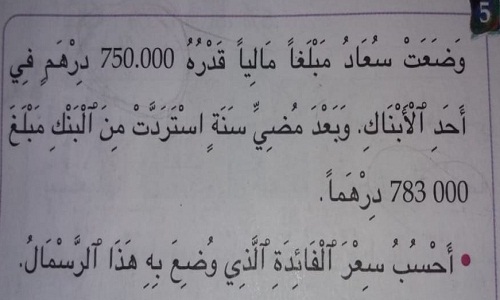 5
وَضَعَتْ سُعَادُ مَبْلَغاً مَالِياً قَدْرُهُ 750.000 دِرْهَمٍ فِي
أَحَدِ ٱلْأَبْنَاكِ. وَبَعْدَ مُضِيِّ سَنَةٍ ٱسْتَرَدَّتْ مِنَ ٱلْبَنْكِ مَبْلَغَ
783 000 دِرْهَماً.
• أَحْسُبُ سِعْرَ ٱلْفَائِدَةِ ٱلَّذِي وُضِعَ بِهِ هَذَا ٱلرَّسْمَالُ.